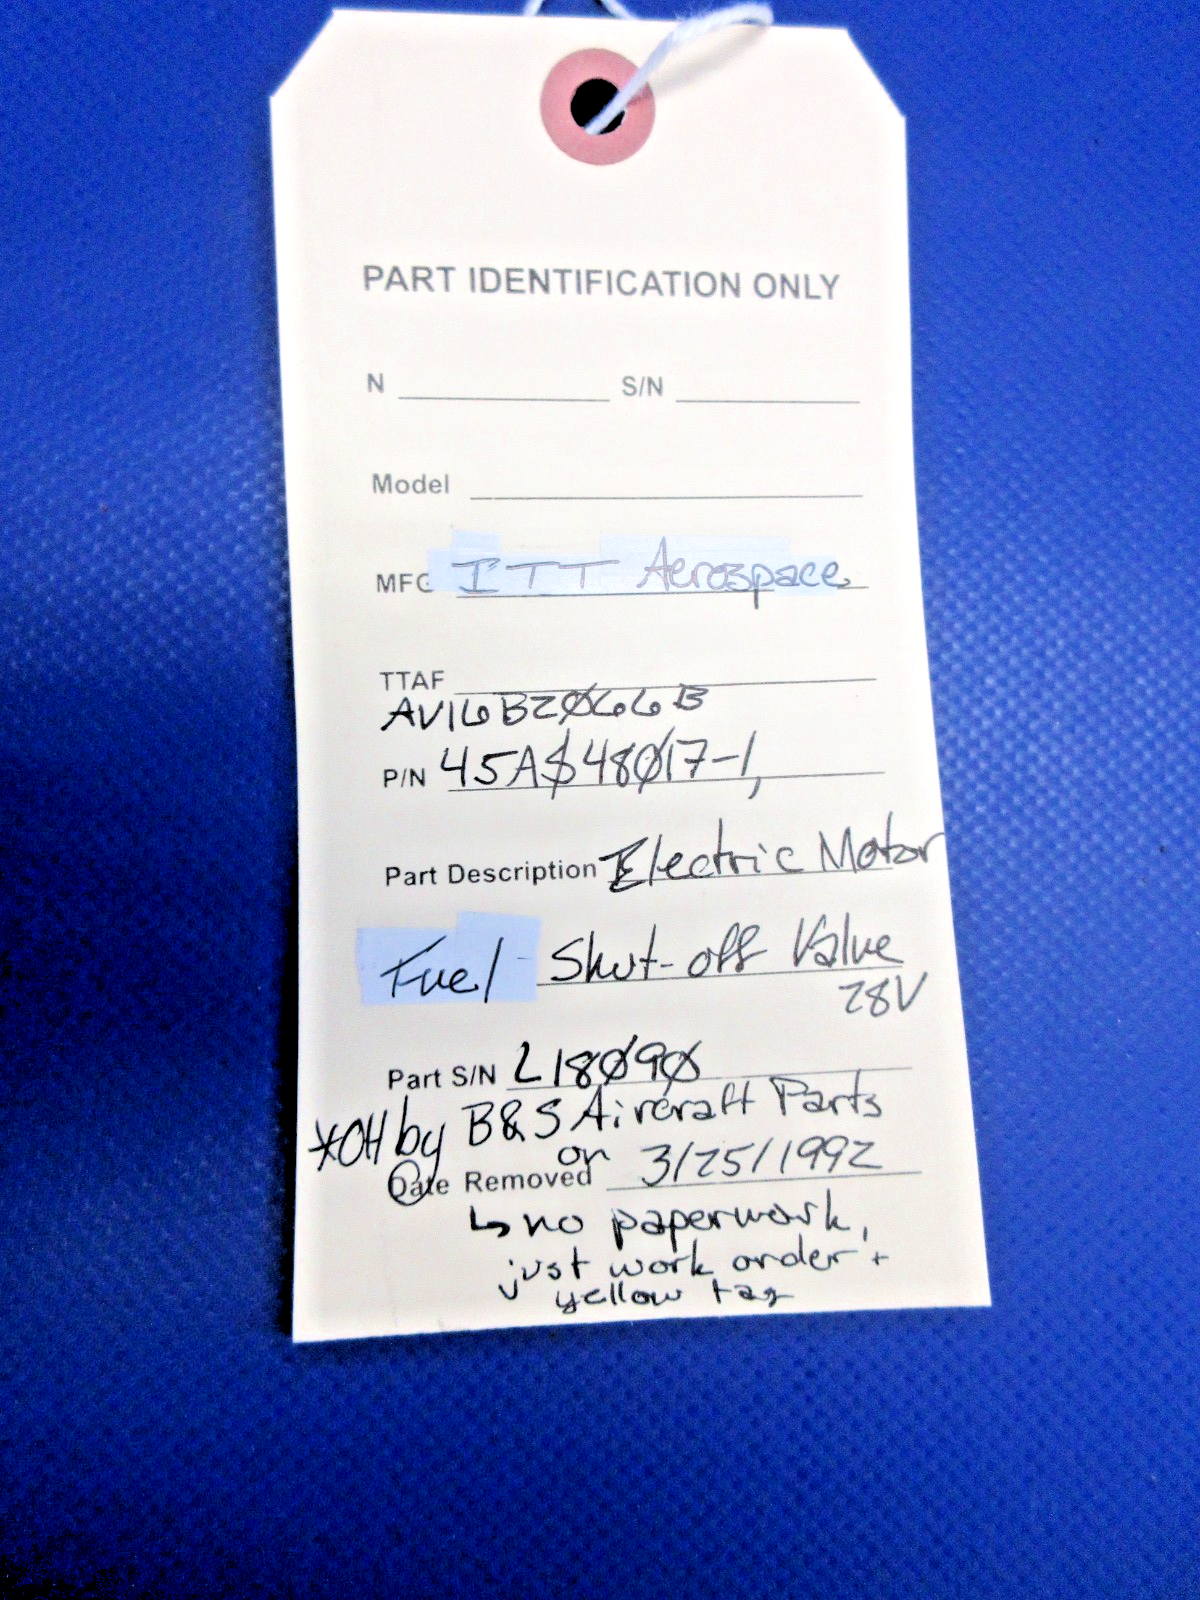 PART IDENTIFICATION ONLY
N S/N
Model
MFG ITT Aerospace
TTAF
AV16B2Ø66B
P/N 45A$48Ø17-1,
Part Description Electric Motor
Fuel Shut-off Valve
28V
Part S/N L18Ø9Ø
*OH by B&S Aircraft Parts
on
Date Removed 3/25/1992
↳ no paperwork,
just work order +
yellow tag